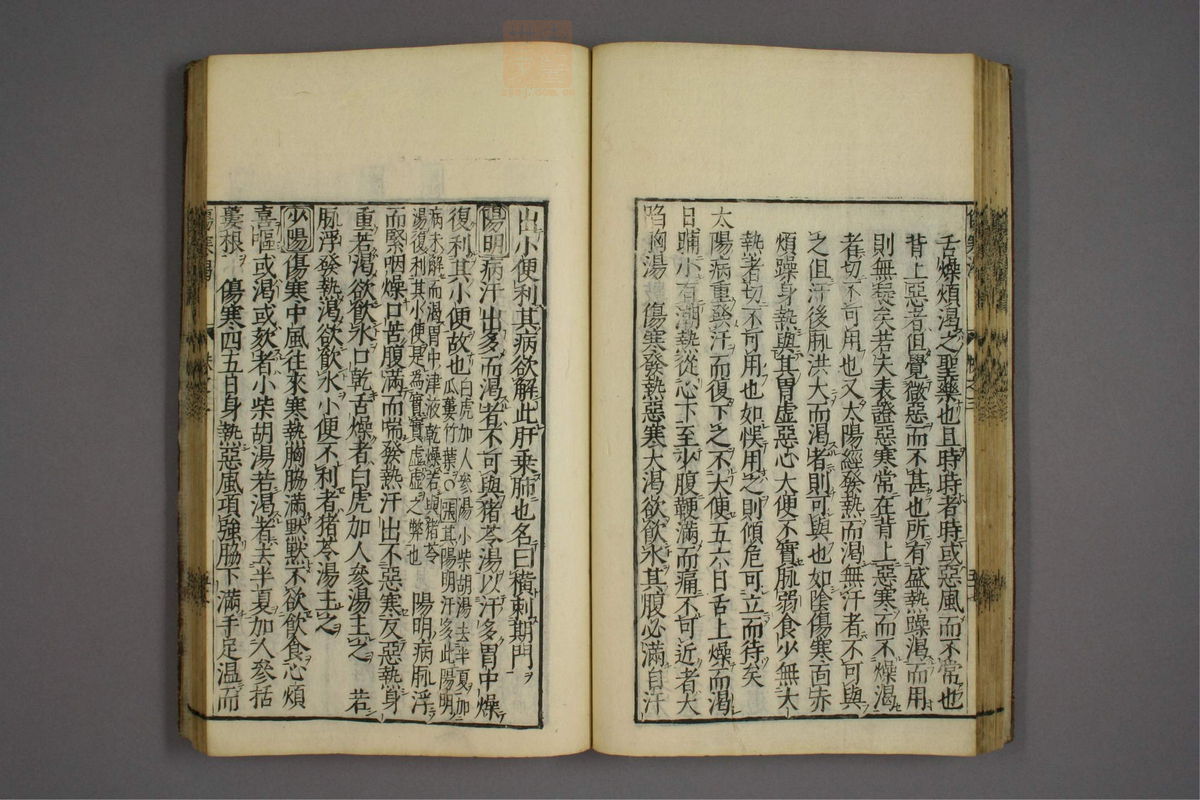 舌燥煩渴之聖藥也且時時者時或惡風而不常也
背上惡者但覺微惡而不甚也所有盛熱躁渴而用
則無疑矣若夫表證惡寒常在背上惡寒而不燥渴
者切不可用也又太陽經發熱而渴無汗者不可與
之但汗後脈洪大而渴者則可與也如陰傷寒面赤
煩躁身熱與其胃虛惡心大便不實脈弱食少無大
熱者切不可用也如悞用之則傾危可立而待矣
太陽病重發汗而復下之不大便五六日舌上燥而渴
日晡小有潮熱從心下至少腹鞕滿而痛不可近者大
陷胸湯 傷寒發熱惡寒大渴欲飲水其腹必滿自汗
出小便利其病欲解此肝乘肺也名曰橫刺期門
陽明病汗出多而渴者不可與猪苓湯以汗多胃中燥
復利其小便故也白虎加人參湯小柴胡湯去半夏加
瓜蔞竹葉〇張其陽明汗多此陽明
病未解而渴胃中津液乾燥若與猪苓
湯復利其小便是為實實虛虛之弊也 陽明病脈浮
而緊咽燥口苦腹滿而喘發熱汗出不惡寒反惡熱身
重若渴欲飲水口乾舌燥者白虎加人參湯主之 若
脈浮發熱渴欲飲水小便不利者猪苓湯主之
少陽傷寒中風往來寒熱胸脇滿默默不欲飲食心煩
喜嘔或渴或欬者小柴胡湯若渴者去半夏加人參括
蔞根 傷寒四五日身熱惡風項強脇下滿手足溫而